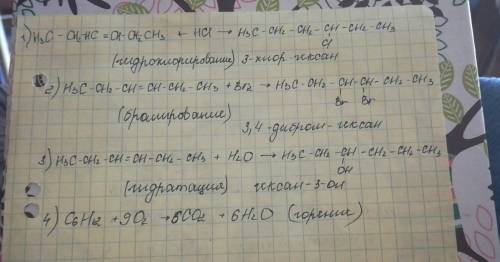 1) H₃C - CH₂-HC = CH-CH₂CH₃ + HCl → H₃C-CH₂-CH₂-CH-CH₂-CH₃
Cl
(гидрохлорирование) 3-хлор-гексан
2) H₃C-CH₂-CH=CH-CH₂-CH₃ + Br₂ → H₃C-CH₂-CH-CH-CH₂-CH₃
Br Br
(бромирование)
3,4-дибром-гексан
3) H₃C-CH₂-CH=CH-CH₂-CH₃ + H₂O → H₃C-CH₂-CH-CH₂-CH₂-CH₃
OH
(гидратация) гексан-3-ол
4) C₆H₁₂ + 9O₂ → 6CO₂ + 6H₂O (горение)